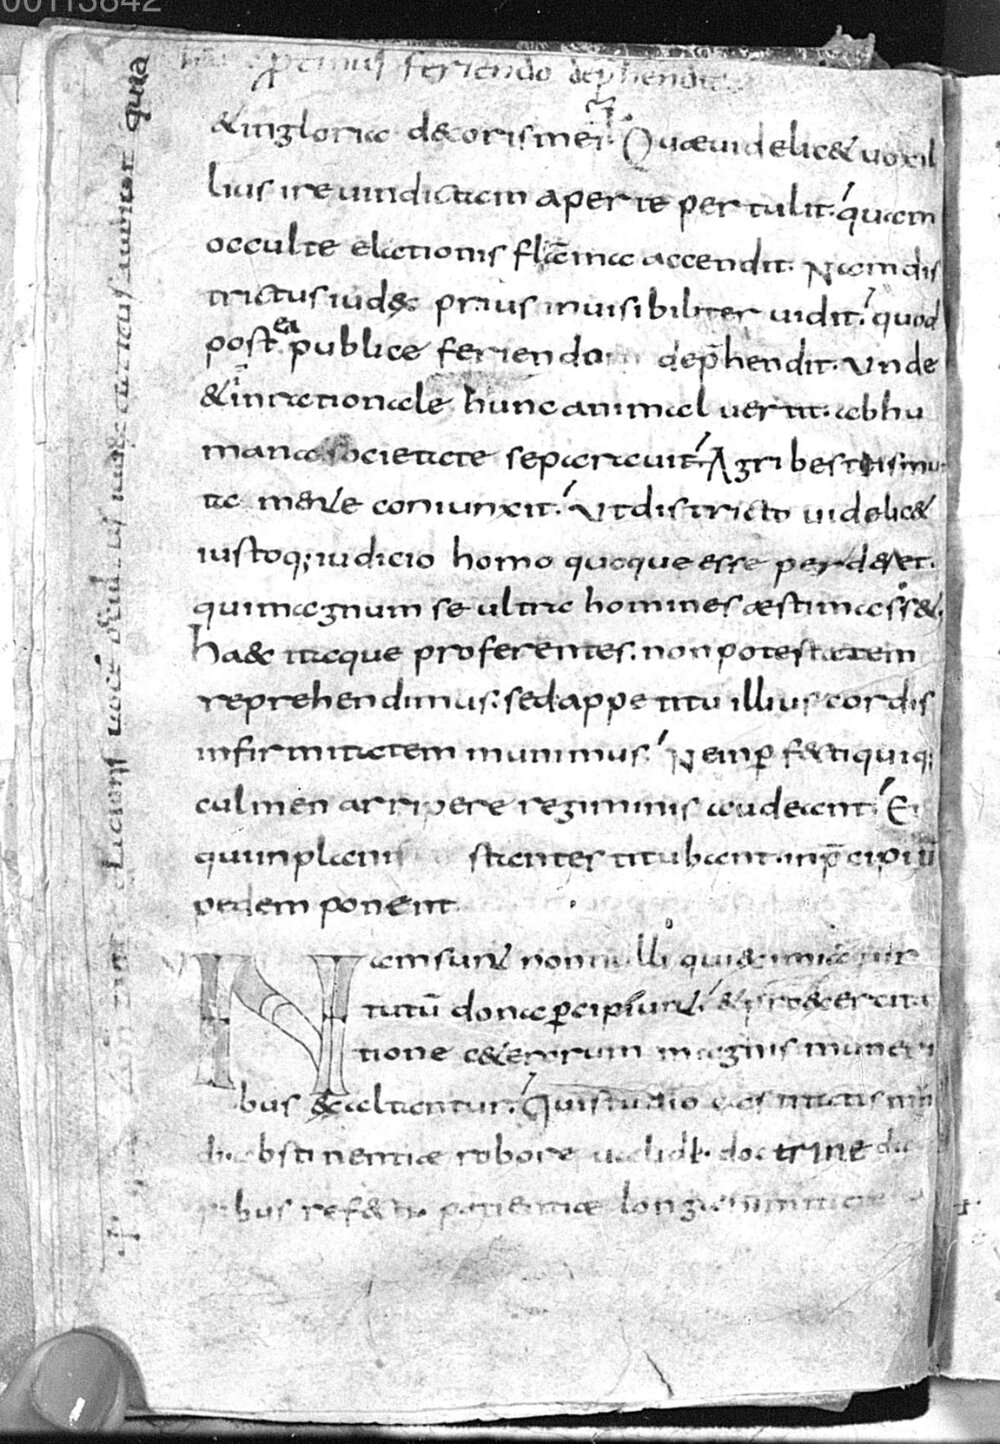 00113842
primus feriendo dep̄hendit
& in gloria decoris mei. Quae videlic& vox il
lius ire vindictam aperte pertulit. quam
occulte elationis flāma accendit. Nam dis
trictus iudex prius invisibiliter vidit. quod
postea publice feriendo dep̄hendit. Unde
& inrationale hunc animal vertit. ab hu
mana societate separavit. Agri bestiis mu
tata mente coniunxit. Ut districto videlic&
iustoq; iudicio homo quoque esse perder&.
qui magnum se ultra homines aestimass&.
Haec itaque proferentes. non potestatem
reprehendimus. sed appetitu illius cordis
infirmitatem munimus. Ne inp̄fecti quiq;
culmen arripere regiminis audeant. Et
qui in planis stantes titubant. in p̄cipitiū
pedem ponent
Nam sunt nonnulli qui eximia vir
tutū dona p̄cipiunt. & pro exercita
tione ceterorum magnis muneri
bus exaltantur. qui studio castitatis mun
di. abstinentiae robore validi. doctrine da
pibus referti. patientiae longanimitate